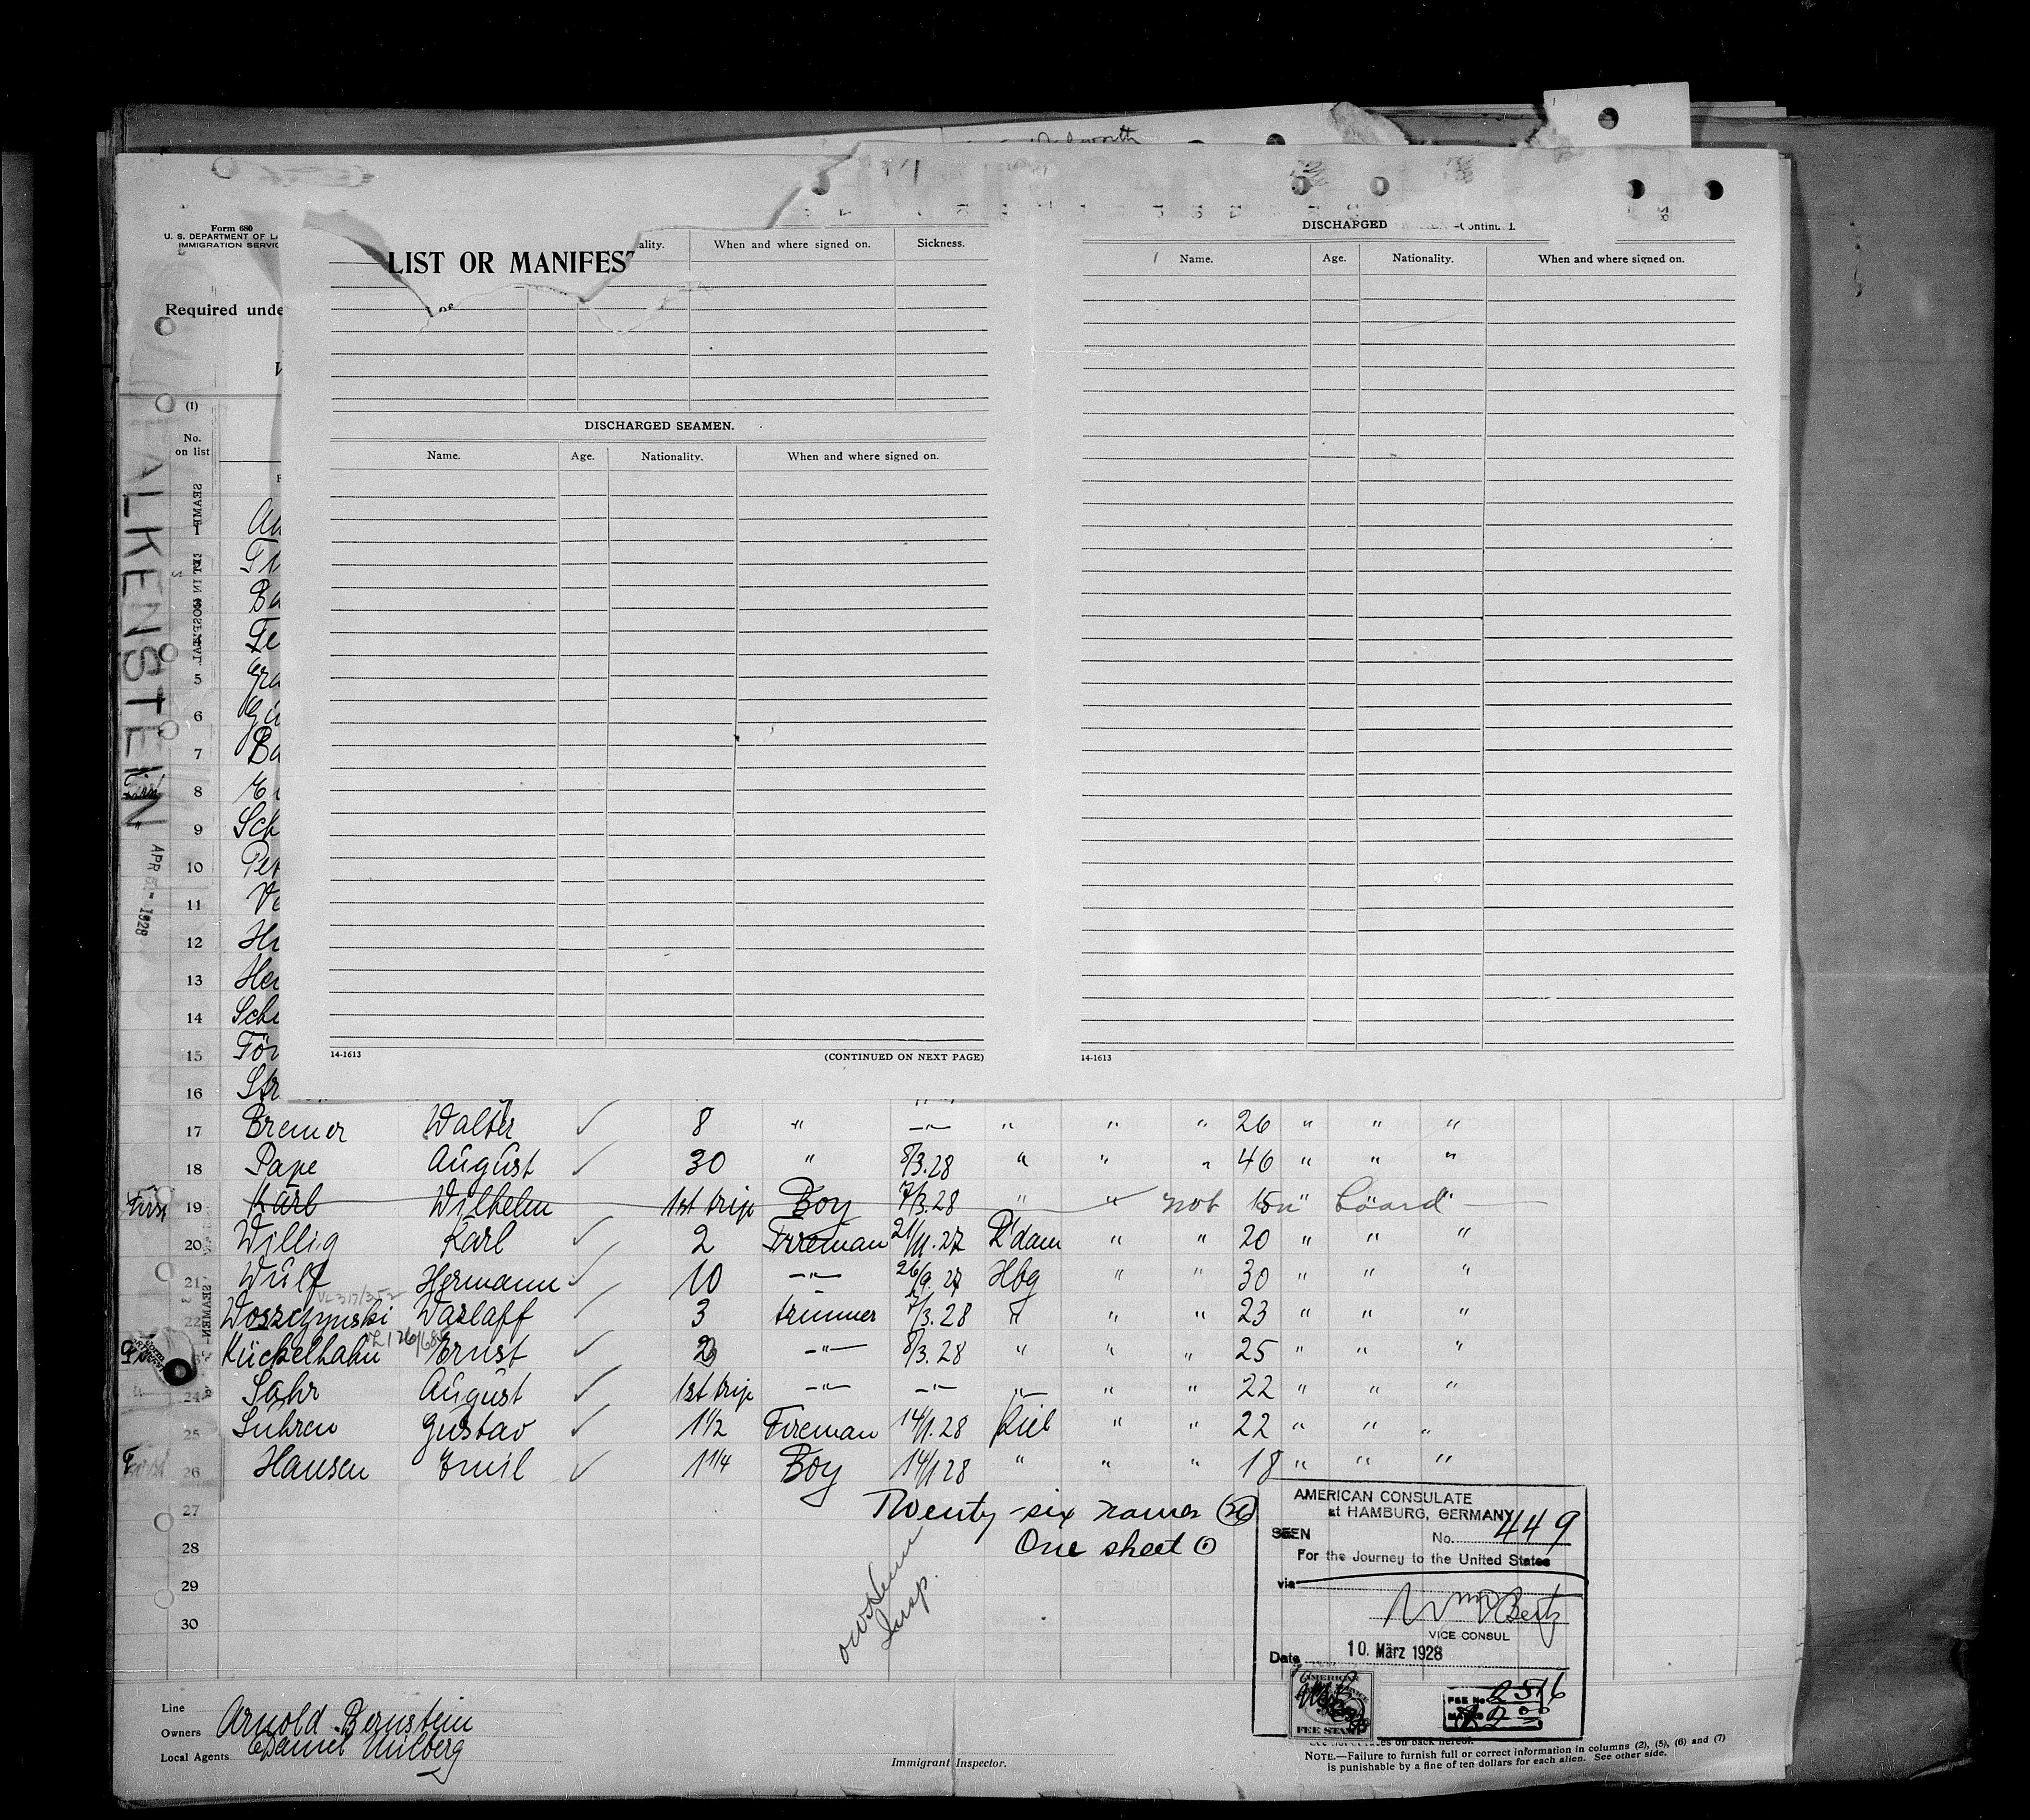 Form 680
U. S. DEPARTMENT OF LA
IMMIGRATION SERVIC
LIST OR MANIFEST
Required unde
ality. When and where signed on. Sickness.
DISCHARGED SEAMEN.
Name. Age. Nationality. When and where signed on.
14-1613 (CONTINUED ON NEXT PAGE)
DISCHARGED
Name. Age. Nationality. When and where signed on.
14-1613
ALKENSTEIN
APR 5 - 1928
(1)
No.
on list
1 Au
Ba
Te
5 Gra
6
7 Ba
8
9 Sch
10 Pet
11
12
13 Hei
14 Sch
15 Tör
16 Str
17 Bremer Walter ✓ 8 " —"— " " " 26 " " "
18 Pape August ✓ 30 " 8/3.28 " " " 46 " " "
First 19 Karl Wilhelm 1st trip Boy 7/3.28 " " not 15 on " board "
20 Willig Karl ✓ 2 Fireman 21/11.27 R'dam " " 20 " " "
21 Wulf Hermann ✓ 10 —"— 26/9.27 Hbg " " 30 " " "
22 Woszczynski Warlaff ✓ 3 trimmer 7/3.28 " " " 23 " " "
Kückelhahn Ernst ✓ 2 —"— 8/3.28 " " " 25 " " "
24 Sahr August ✓ 1st trip —"— —"— —"— " " 22 " " "
25 Suhren Gustav ✓ 1 1/2 Fireman 14/1.28 Kiel " " 22 " " "
26 Hansen Emil ✓ 1 1/4 Boy 14/1 28 " " " 18 " " "
27 Twenty-six names (26)
28 One sheet (1)
29
30
Insp.
AMERICAN CONSULATE
at HAMBURG, GERMANY
SEEN No. 449
For the Journey to the United States
via
VICE CONSUL
Date 10. März 1928
AMERICAN
FEE STAMP
FEE No. 2516
Line
Owners Arnold Bernstein
Local Agents Daniel Milberg
Immigrant Inspector.
NOTE.—Failure to furnish full or correct information in columns (2), (5), (6) and (7)
is punishable by a fine of ten dollars for each alien. See other side.